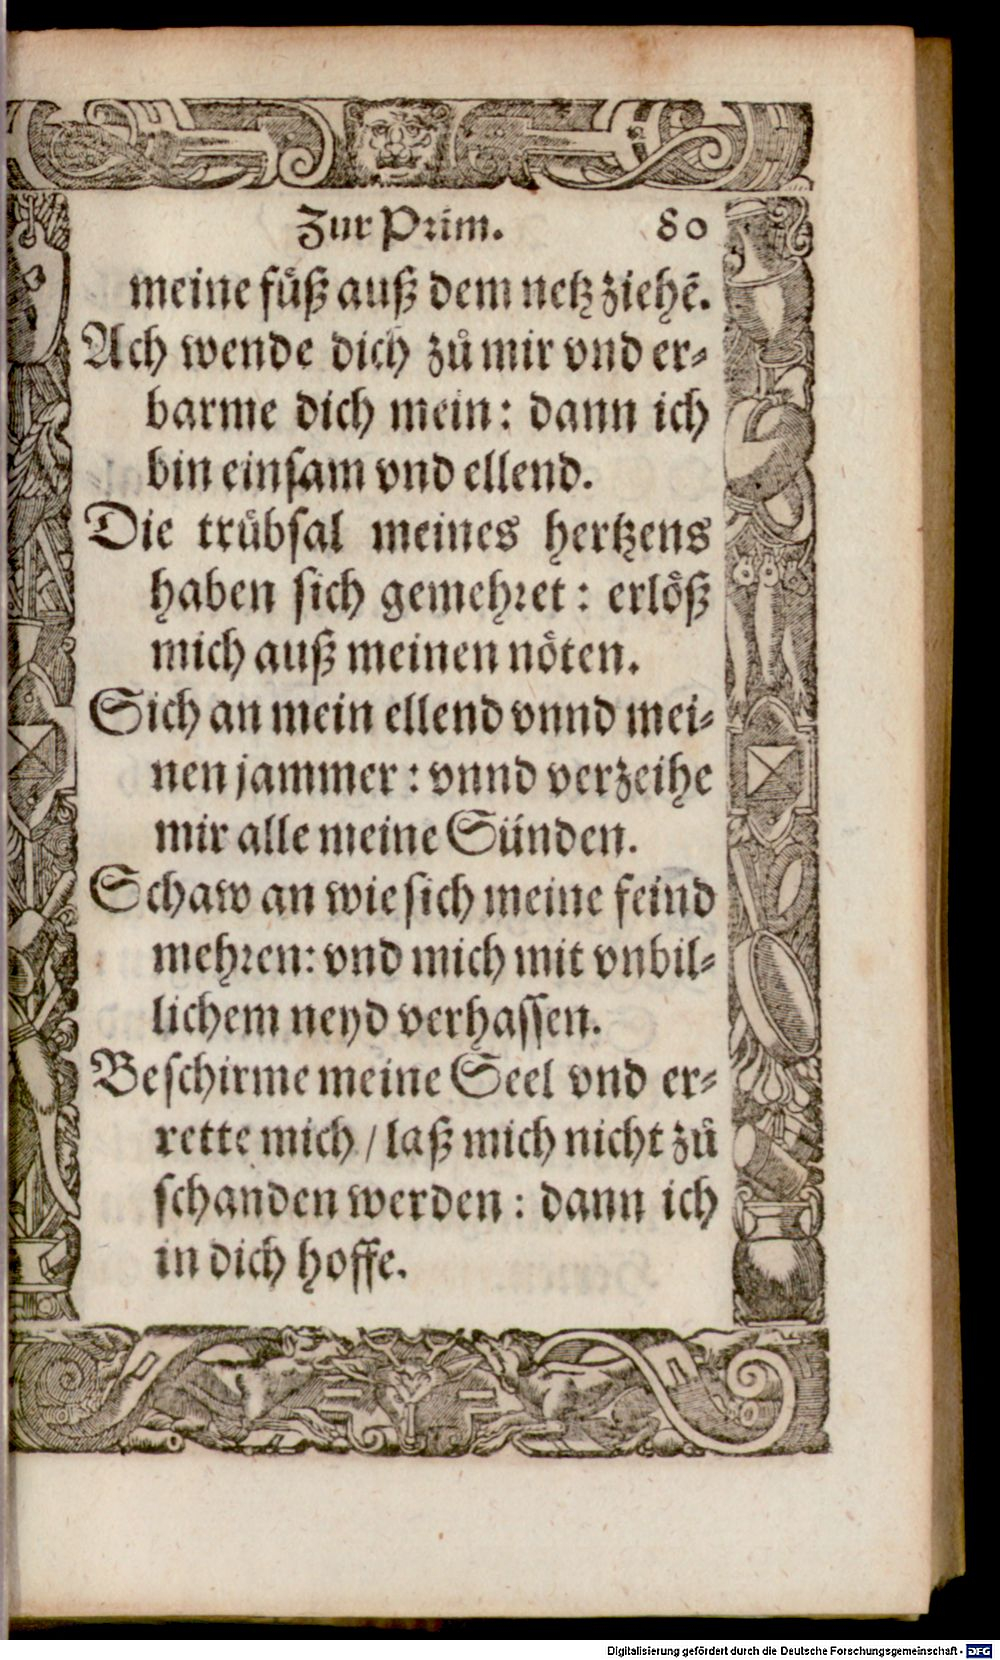 Zur Prim. 80
meine fuͤß auß dem netz ziehē.
Ach wende dich zuͦ mir vnd er-
barme dich mein: dann ich
bin einsam vnd ellend.
Die truͤbsal meines hertzens
haben sich gemehret: erloͤß
mich auß meinen noͤten.
Sich an mein ellend vnnd mei-
nen jammer: vnnd verzeihe
mir alle meine Sünden.
Schaw an wie sich meine feind
mehren: vnd mich mit vnbil-
lichem neyd verhassen.
Beschirme meine Seel vnd er-
rette mich / laß mich nicht zuͦ
schanden werden: dann ich
in dich hoffe.
Digitalisierung gefördert durch die Deutsche Forschungsgemeinschaft - DFG